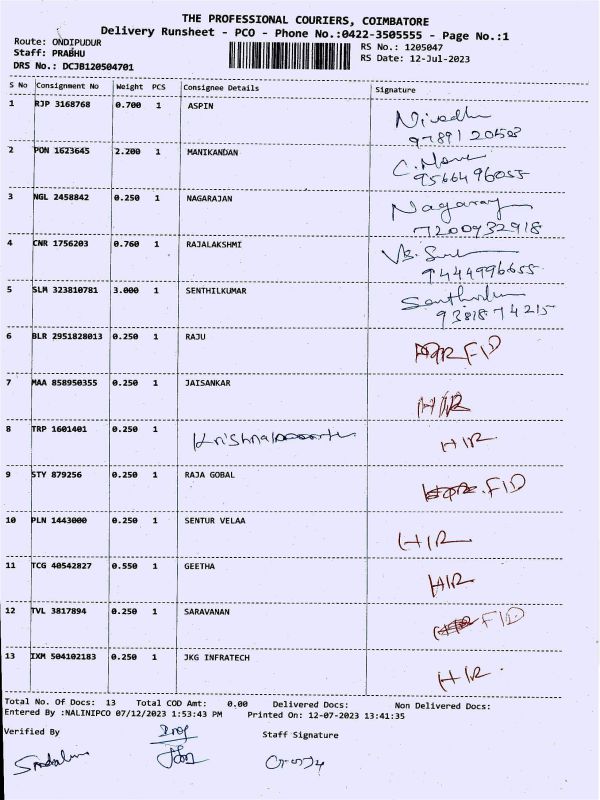 THE PROFESSIONAL COURIERS, COIMBATORE
Delivery Runsheet - PCO - Phone No.:0422-3505555 - Page No.:1
Route: ONDIPUDUR
RS No.: 1205047
Staff: PRABHU
RS Date: 12-Jul-2023
DRS No.: DCJB120504701
S No Consignment No Weight PCS Consignee Details Signature
1 RJP 3168768 0.700 1 ASPIN
2 PON 1623645 2.200 1 MANIKANDAN
9566496055
3 NGL 2458842 0.250 1 NAGARAJAN Nagaraj
7200932918
4 CNR 1756203 0.760 1 RAJALAKSHMI
9444996655
5 SLM 323810781 3.000 1 SENTHILKUMAR
9381874215
6 BLR 2951828013 0.250 1 RAJU FID
7 MAA 858950355 0.250 1 JAISANKAR HIR
8 TRP 1601401 0.250 1 HIR
9 STY 879256 0.250 1 RAJA GOBAL FID
10 PLN 1443000 0.250 1 SENTUR VELAA HIR
11 TCG 40542827 0.550 1 GEETHA HIR
12 TVL 3817894 0.250 1 SARAVANAN FID
13 IXM 504102183 0.250 1 JKG INFRATECH HIR
Total No. Of Docs: 13 Total COD Amt: 0.00 Delivered Docs: Non Delivered Docs:
Entered By :NALINIPCO 07/12/2023 1:53:43 PM Printed On: 12-07-2023 13:41:35
Verified By Staff Signature